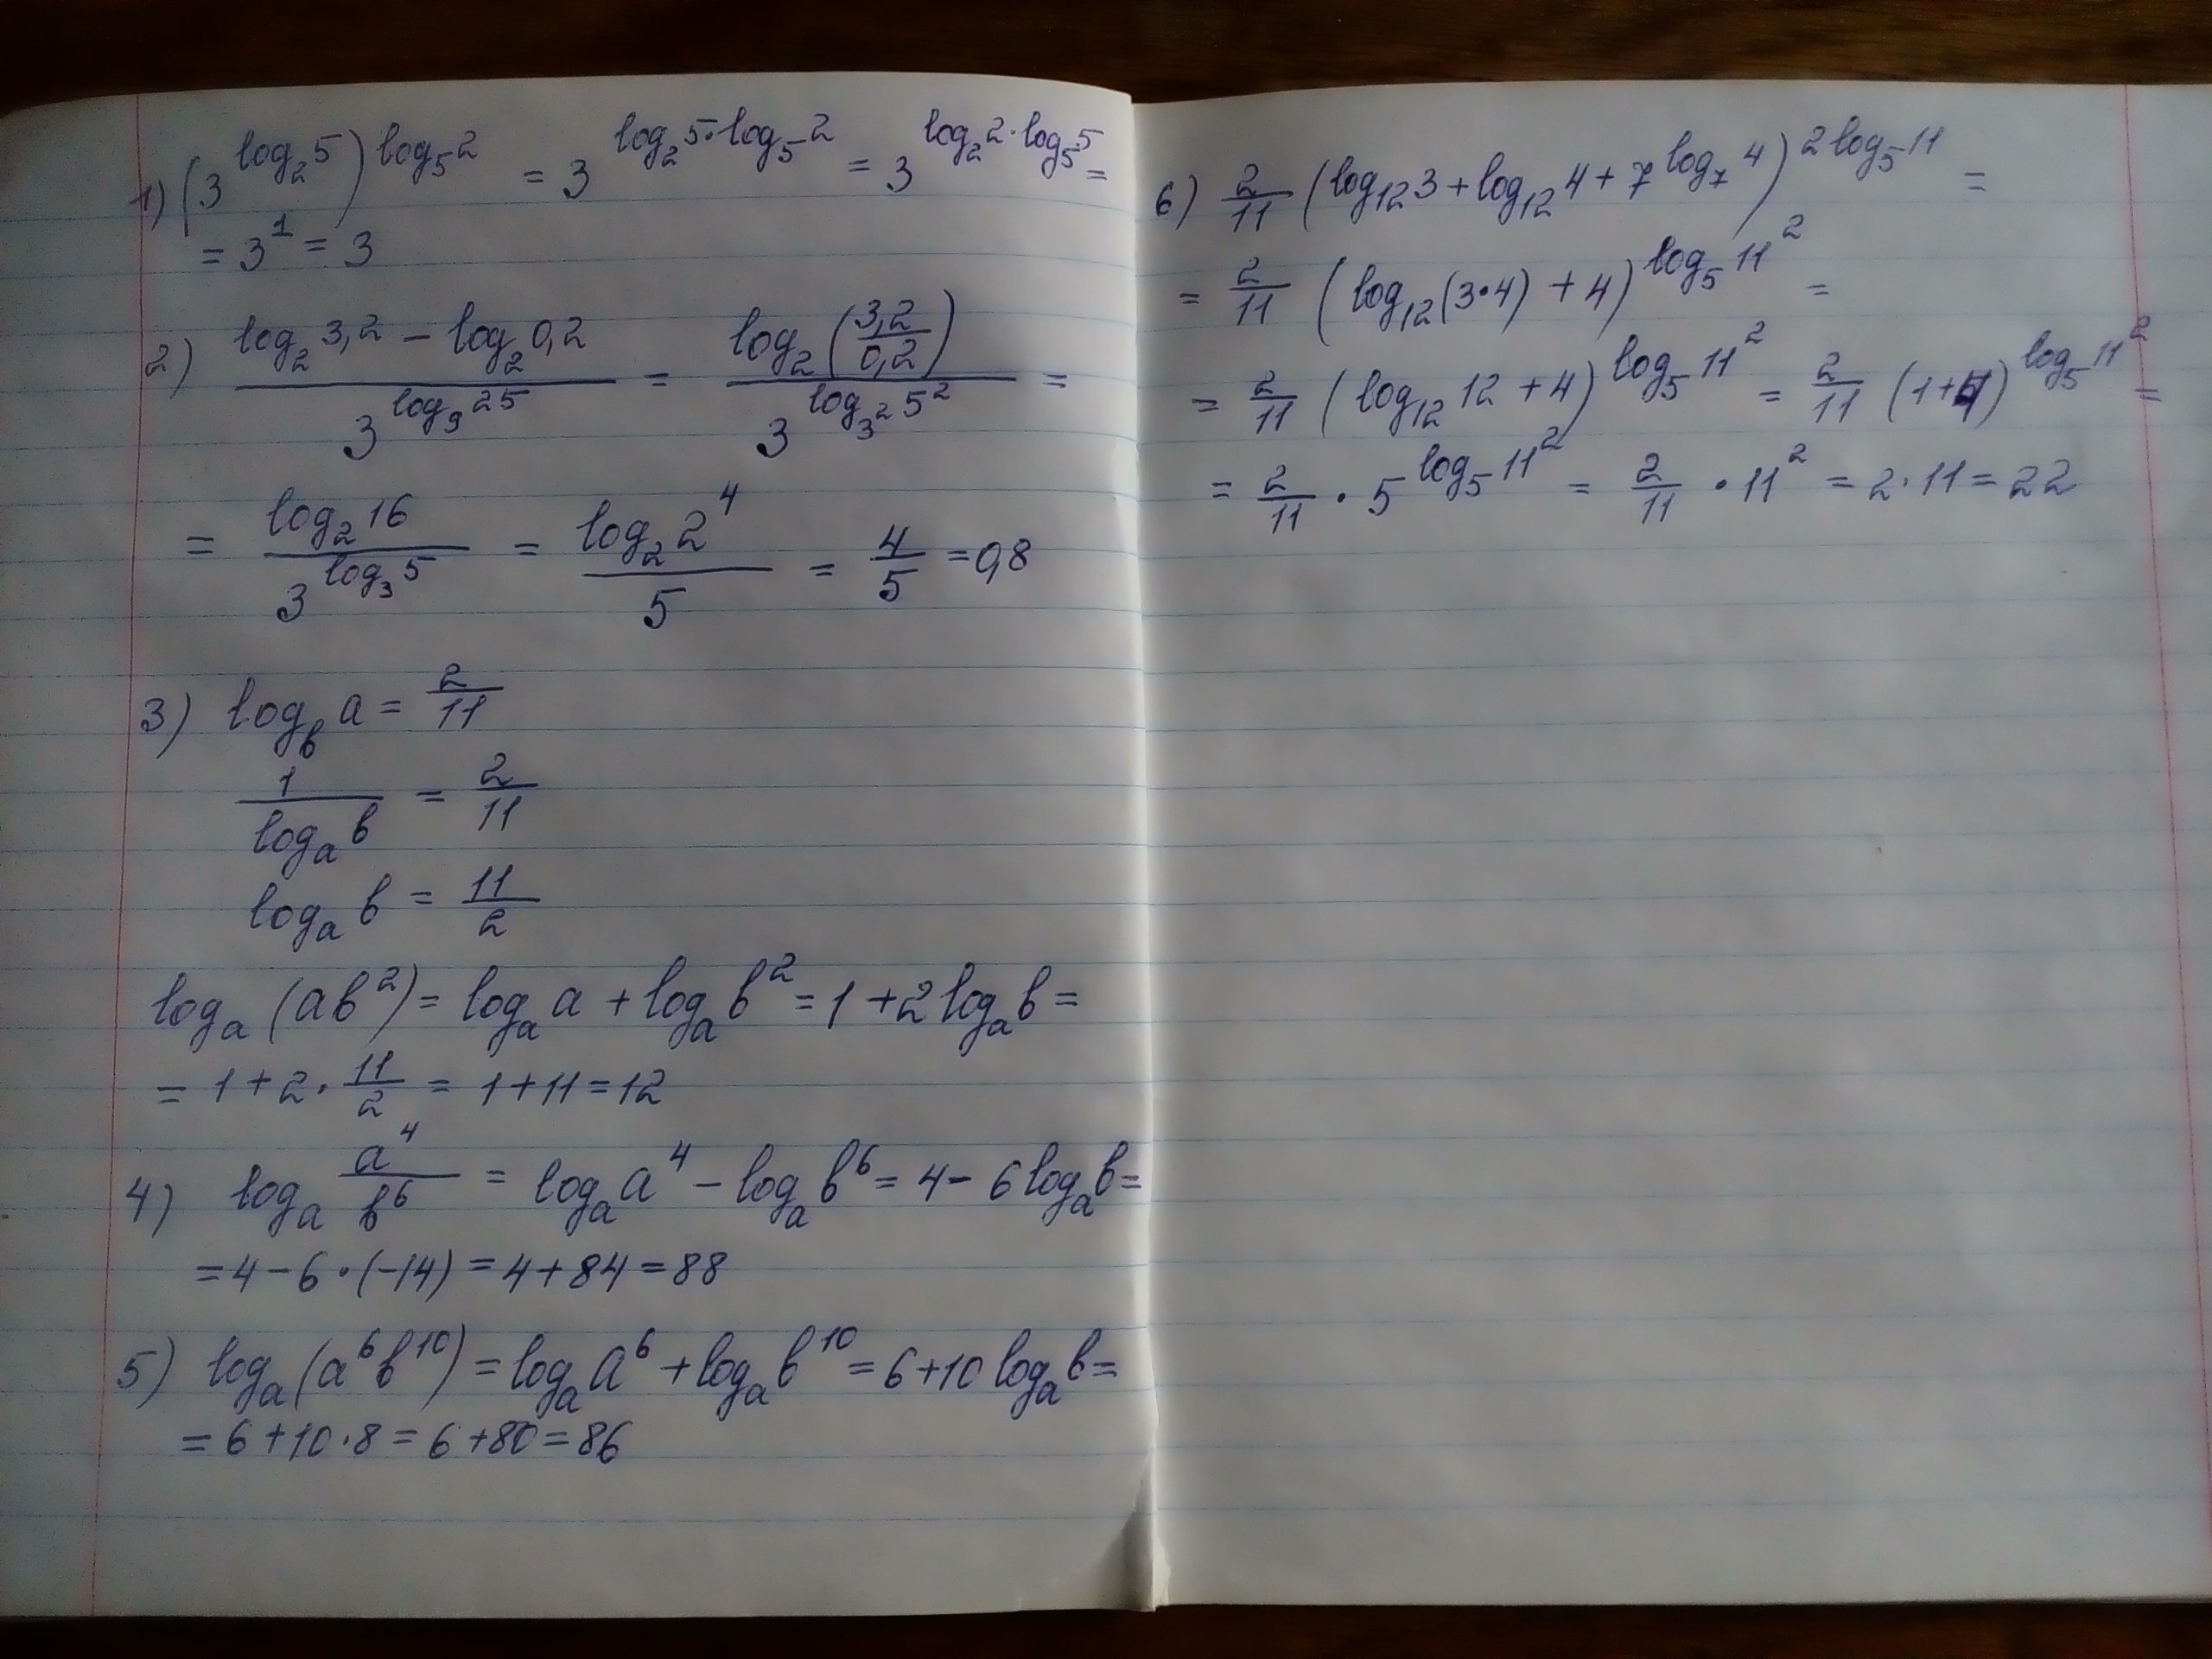 1) (3^{log_2 5})^{log_5 2} = 3^{log_2 5·log_5 2} = 3^{log_2 2·log_5 5} =
= 3^1 = 3
2) \frac{log_2 3,2 - log_2 0,2}{3^{log_9 25}} = \frac{log_2 (\frac{3,2}{0,2})}{3^{log_{3^2} 5^2}} =
= \frac{log_2 16}{3^{log_3 5}} = \frac{log_2 2^4}{5} = \frac{4}{5} = 0,8
3) log_b a = \frac{2}{11}
\frac{1}{log_a b} = \frac{2}{11}
log_a b = \frac{11}{2}
log_a (ab^2) = log_a a + log_a b^2 = 1 + 2 log_a b =
= 1 + 2·\frac{11}{2} = 1 + 11 = 12
4) log_a \frac{a^4}{b^6} = log_a a^4 - log_a b^6 = 4 - 6 log_a b =
= 4 - 6·(-14) = 4 + 84 = 88
5) log_a (a^6 b^{10}) = log_a a^6 + log_a b^{10} = 6 + 10 log_a b =
= 6 + 10·8 = 6 + 80 = 86
6) \frac{2}{11} (log_{12} 3 + log_{12} 4 + 7^{log_7 4})^{2 log_5 11} =
= \frac{2}{11} (log_{12} (3·4) + 4)^{log_5 11^2} =
= \frac{2}{11} (log_{12} 12 + 4)^{log_5 11^2} = \frac{2}{11} (1 + 4)^{log_5 11^2} =
= \frac{2}{11} · 5^{log_5 11^2} = \frac{2}{11} · 11^2 = 2·11 = 22